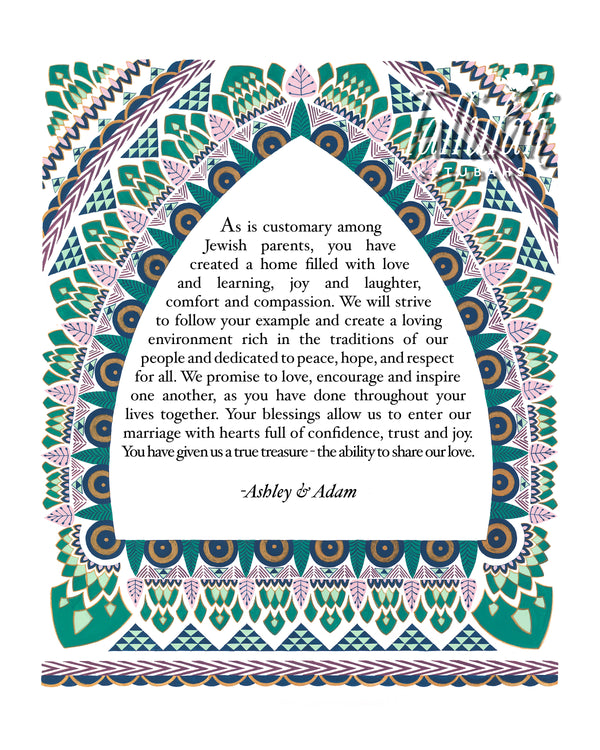 As is customary among
Jewish parents, you have
created a home filled with love
and learning, joy and laughter,
comfort and compassion. We will strive
to follow your example and create a loving
environment rich in the traditions of our
people and dedicated to peace, hope, and respect
for all. We promise to love, encourage and inspire
one another, as you have done throughout your
lives together. Your blessings allow us to enter our
marriage with hearts full of confidence, trust and joy.
You have given us a true treasure - the ability to share our love.
-Ashley & Adam